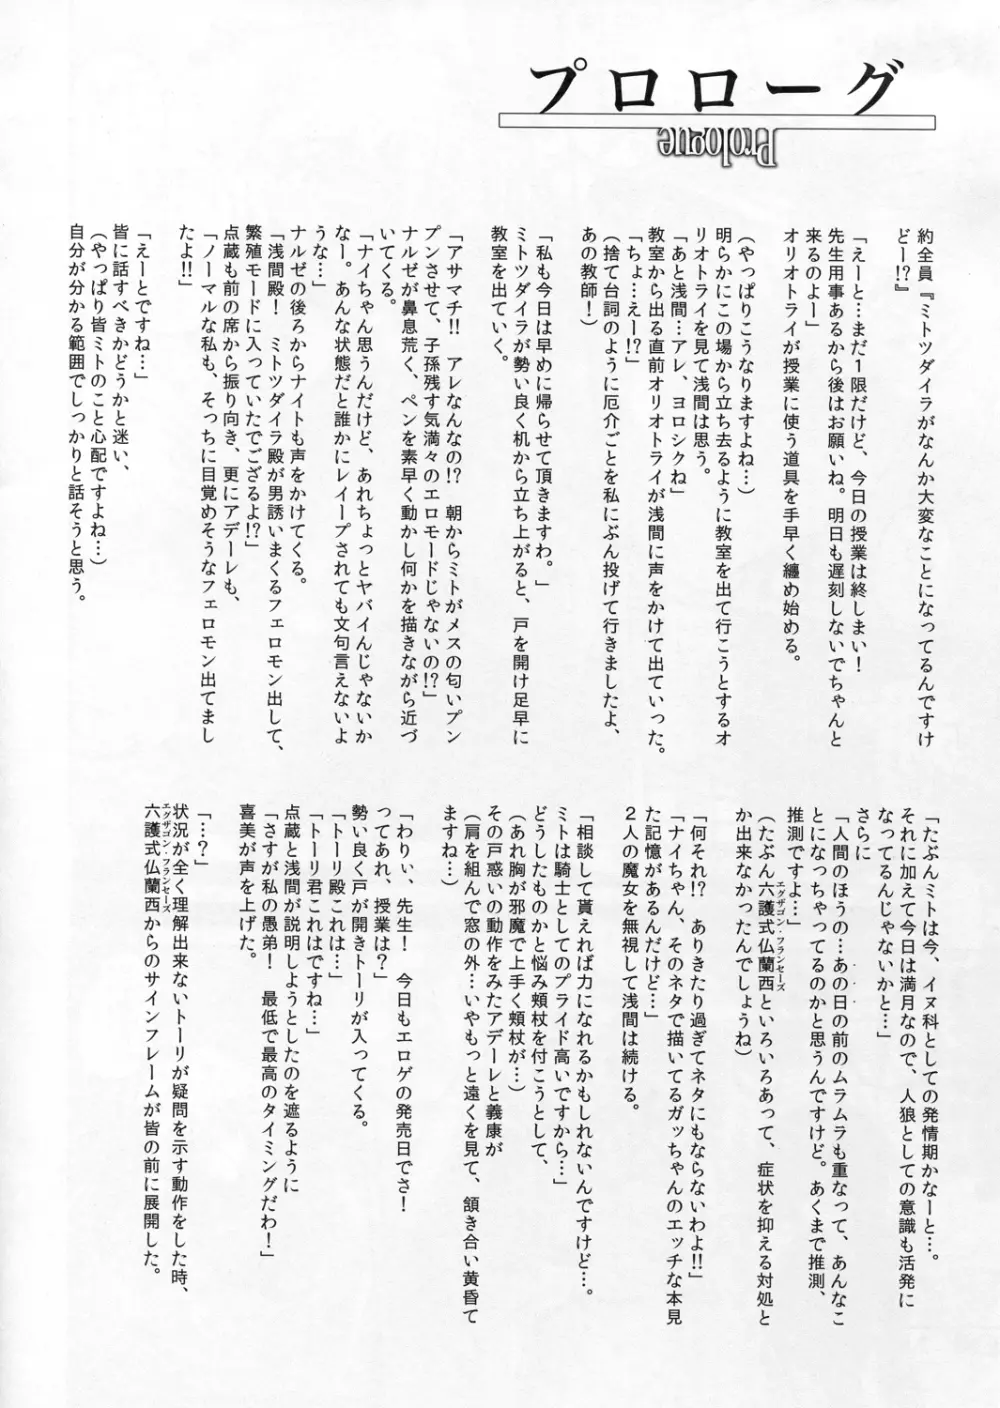 プロローグ
Prologue
約全員『ミトツダイラがなんか大変なことになってるんですけ
どー!?』
「えーと…まだ1限だけど、今日の授業は終しまい！
先生用事あるから後はお願いね。明日も遅刻しないでちゃんと
来るのよー」
オリオトライが授業に使う道具を手早く纏め始める。
(やっぱりこうなりますよね…)
明らかにこの場から立ち去るように教室を出て行こうとするオ
リオトライを見て浅間は思う。
「あと浅間…アレ、ヨロシクね」
教室から出る直前オリオトライが浅間に声をかけて出ていった。
「ちょ…えー!?」
(捨て台詞のように厄介ごとを私にぶん投げて行きましたよ、
あの教師！)
「私も今日は早めに帰らせて頂きますわ。」
ミトツダイラが勢い良く机から立ち上がると、戸を開け足早に
教室を出ていく。
「アサマチ!!　アレなんなの!?　朝からミトがメスの匂いプン
プンさせて、子孫残す気満々のエロモードじゃないの!?」
ナルゼが鼻息荒く、ペンを素早く動かし何かを描きながら近づ
いてくる。
「ナイちゃん思うんだけど、あれちょっとヤバイんじゃないか
なー。あんな状態だと誰かにレイープされても文句言えないよ
うな…」
ナルゼの後ろからナイトも声をかけてくる。
「浅間殿！　ミトツダイラ殿が男誘いまくるフェロモン出して、
繁殖モードに入っていたでござるよ!?」
点蔵も前の席から振り向き、更にアデーレも、
「ノーマルな私も、そっちに目覚めそうなフェロモン出てまし
たよ!!」
「えーとですね…」
皆に話すべきかどうかと迷い、
(やっぱり皆ミトのこと心配ですよね…)
自分が分かる範囲でしっかりと話そうと思う。
「たぶんミトは今、イヌ科としての発情期かなーと…。
それに加えて今日は満月なので、人狼としての意識も活発に
なってるんじゃないかと…」
さらに
「人間のほうの…あの日の前のムラムラも重なって、あんなこ
とになっちゃってるのかと思うんですけど。あくまで推測、
推測ですよ…」
(たぶん六護式仏蘭西といろいろあって、症状を抑える対処と
エグザゴン・フランセーズ
か出来なかったんでしょうね)
「何それ!?　ありきたり過ぎてネタにもならないわよ!!」
「ナイちゃん、そのネタで描いてるガッちゃんのエッチな本見
た記憶があるんだけど…」
2人の魔女を無視して浅間は続ける。
「相談して貰えれば力になれるかもしれないんですけど…。
ミトは騎士としてのプライド高いですから…」
どうしたものかと悩み頬杖を付こうとして、
(あれ胸が邪魔で上手く頬杖が…)
その戸惑いの動作をみたアデーレと義康が
(肩を組んで窓の外…いやもっと遠くを見て、頷き合い黄昏て
ますね…)
「わりぃ、先生！　今日もエロゲの発売日でさ！
ってあれ、授業は?」
勢い良く戸が開きトーリが入ってくる。
「トーリ殿これは…」
「トーリ君これはですね…」
点蔵と浅間が説明しようとしたのを遮るように
「さすが私の愚弟！　最低で最高のタイミングだわ！」
喜美が声を上げた。
「…?」
状況が全く理解出来ないトーリが疑問を示す動作をした時、
六護式仏蘭西からのサインフレームが皆の前に展開した。
エグザゴン・フランセーズ